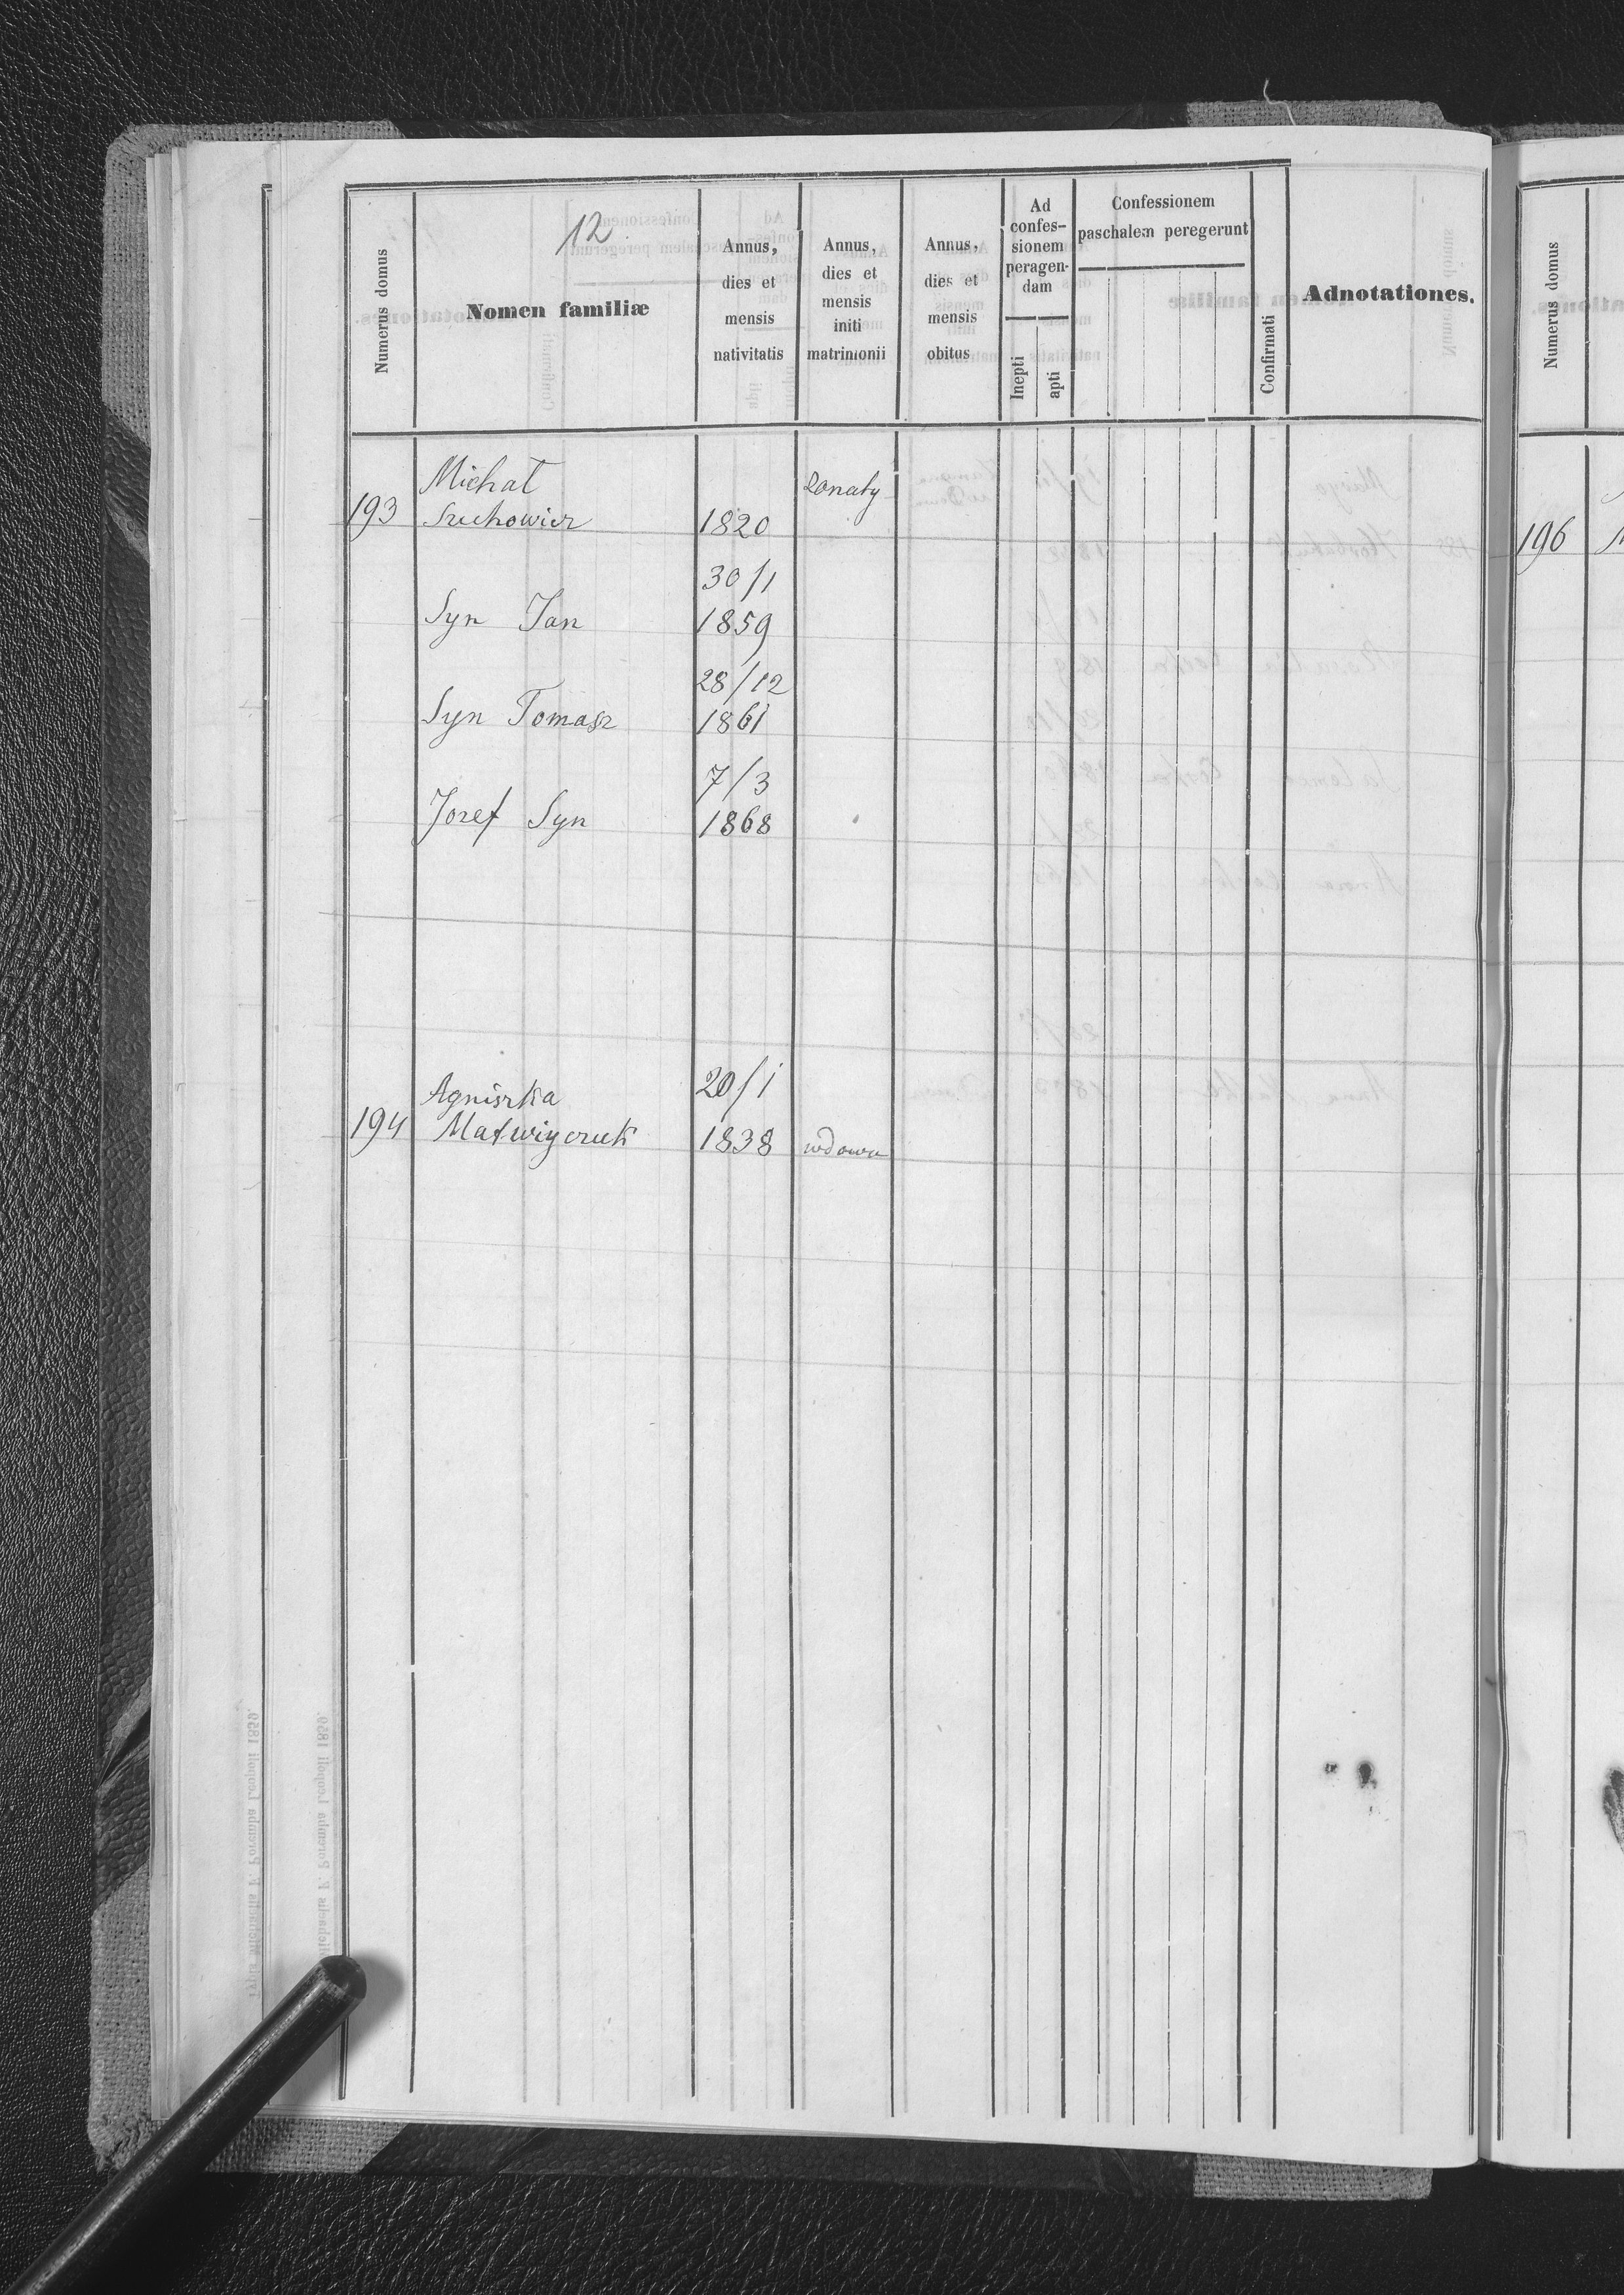 12
Numerus domus
Nomen familiæ
Annus,
dies et
mensis
nativitatis
Annus,
dies et
mensis
initi
matrimonii
Annus,
dies et
mensis
obitus
Ad
confes-
sionem
peragen-
dam
Inepti
apti
Confessionem
paschalem peregerunt
Confirmati
Adnotationes.
Michał
żonaty
193 Szuchowicz 1820
30/1
Syn Jan 1859
28/12
Syn Tomasz 1861
7/3
Jozef Syn 1868
Agniszka 20/1
194 Matwiyczuk 1838 wdowa
Numerus domus
196